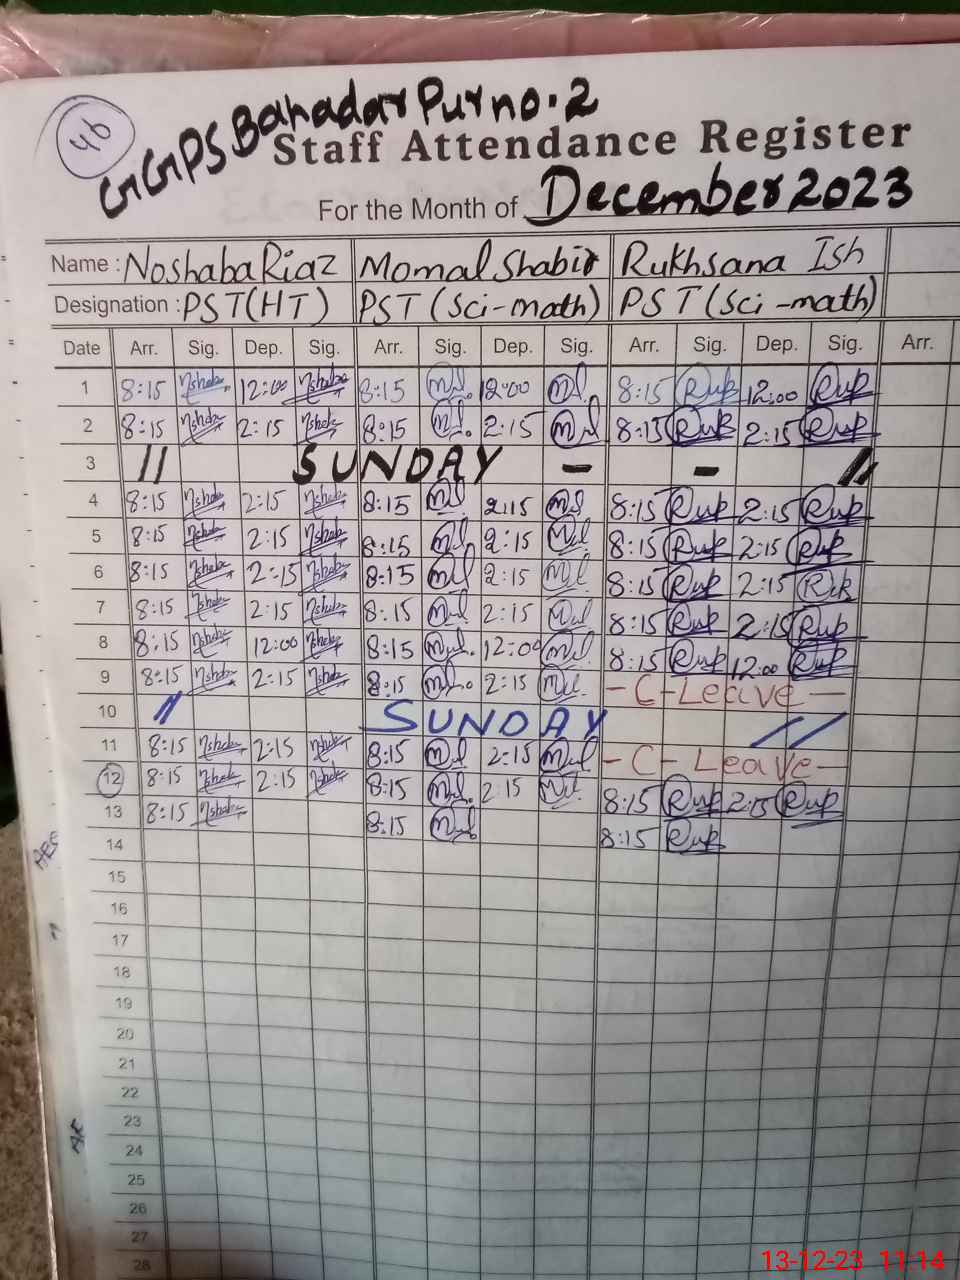 46
GGPS Bahadar Pur no. 2
Staff Attendance Register
For the Month of December 2023
Name : Noshaba Riaz Momal Shabir Rukhsana Ish
Designation : PST(HT) PST (Sci-math) PST (Sci-math)
Date Arr. Sig. Dep. Sig. Arr. Sig. Dep. Sig. Arr. Sig. Dep. Sig. Arr.
1 8:15 12:00 8:15 12:00 8:15 Ruk 12:00 Ruk
2 8:15 2:15 8:15 2:15 8:15 Ruk 2:15 Ruk
3 // SUNDAY - - //
4 8:15 2:15 8:15 2:15 8:15 Ruk 2:15 Ruk
5 8:15 2:15 8:15 2:15 8:15 Ruk 2:15 Ruk
6 8:15 2:15 8:15 2:15 8:15 Ruk 2:15 Ruk
7 8:15 2:15 8:15 2:15 8:15 Ruk 2:15 Ruk
8 8:15 12:00 8:15 12:00 8:15 Ruk 12:00 Ruk
9 8:15 2:15 8:15 2:15 - C - Leave -
10 // SUNDAY //
11 8:15 2:15 8:15 2:15 - C - Leave -
12 8:15 2:15 8:15 2:15 8:15 Ruk 2:15 Ruk
13 8:15 8:15 8:15 Ruk
14
15
16
17
18
19
20
21
22
23
24
25
26
27
28
13-12-23 11:14